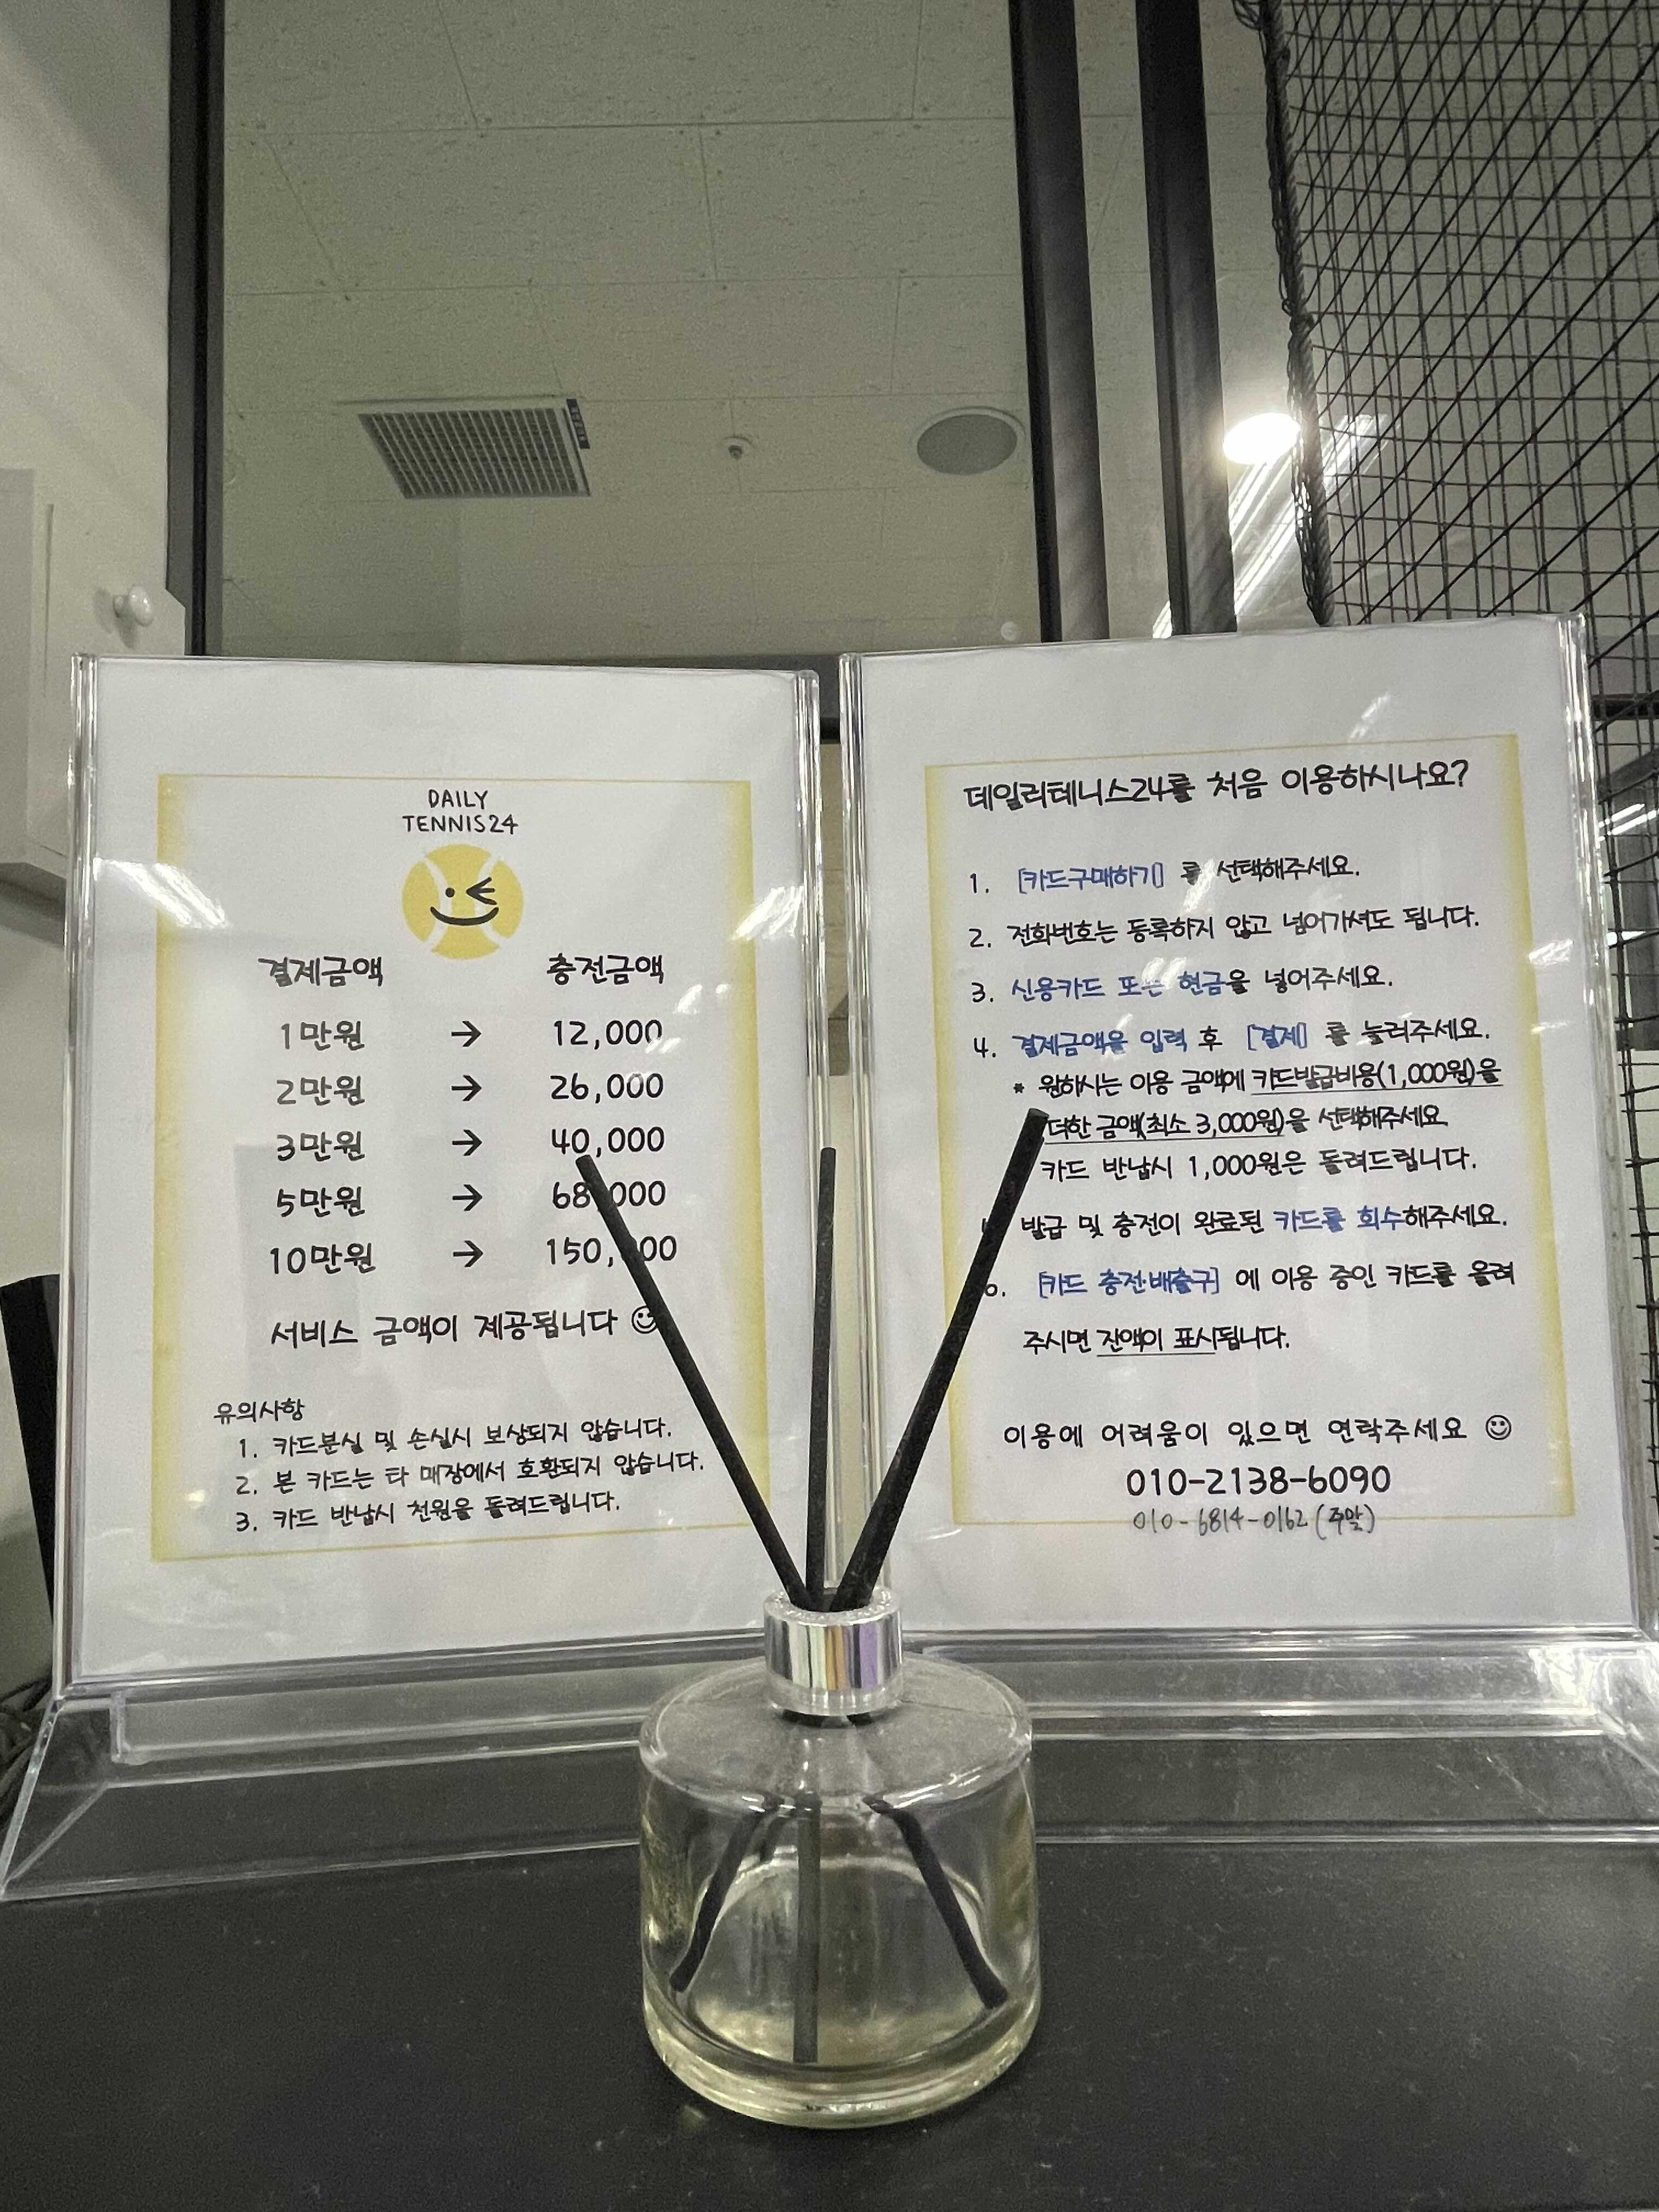 DAILY
TENNIS24
결제금액 충전금액
1만원 → 12,000
2만원 → 26,000
3만원 → 40,000
5만원 → 68,000
10만원 → 150,000
서비스 금액이 제공됩니다 ☺
유의사항
1. 카드분실 및 손실시 보상되지 않습니다.
2. 본 카드는 타 매장에서 호환되지 않습니다.
3. 카드 반납시 천원을 돌려드립니다.
데일리테니스24를 처음 이용하시나요?
1. [카드구매하기] 를 선택해주세요.
2. 전화번호는 등록하지 않고 넘어가셔도 됩니다.
3. 신용카드 또는 현금을 넣어주세요.
4. 결제금액을 입력 후 [결제] 를 눌러주세요.
* 원하시는 이용 금액에 카드발급비용(1,000원)을
더한 금액(최소 3,000원)을 선택해주세요
카드 반납시 1,000원은 돌려드립니다.
발급 및 충전이 완료된 카드를 회수해주세요.
6. [카드 충전·배출구] 에 이용 중인 카드를 올려
주시면 잔액이 표시됩니다.
이용에 어려움이 있으면 연락주세요 ☺
010-2138-6090
010-6814-0162 (주말)